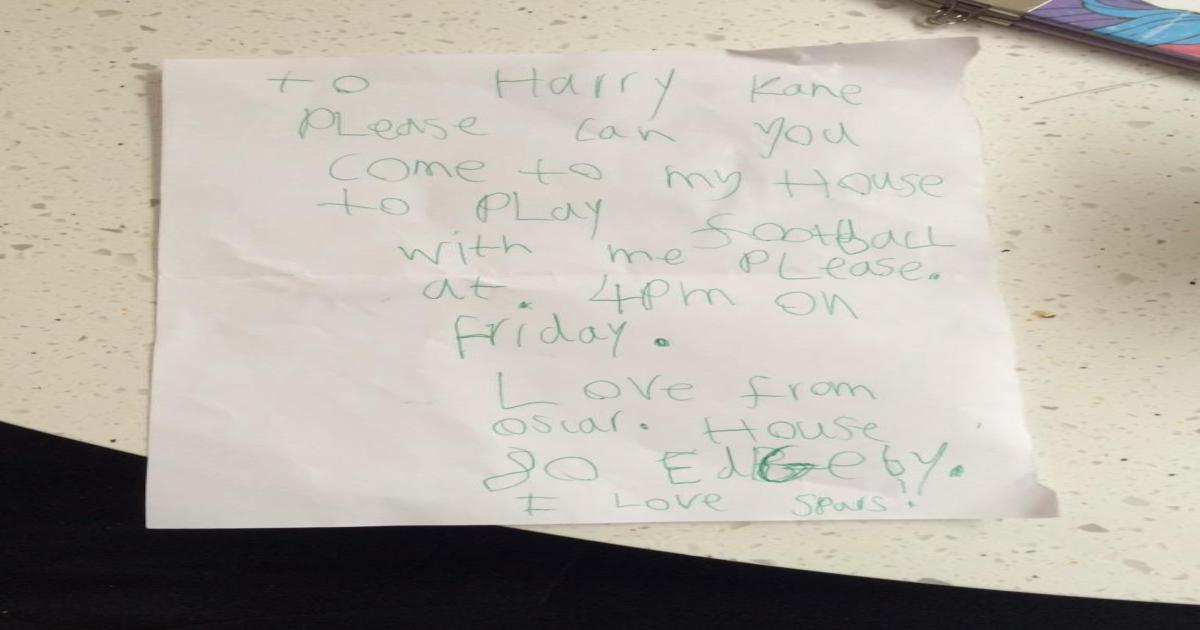 to Harry Kane
PLease can you
come to my House
to PLay football
with me PLease.
at. 4Pm on
Friday.
Love from
oscar. House
80 EdGeby.
I Love Spurs!